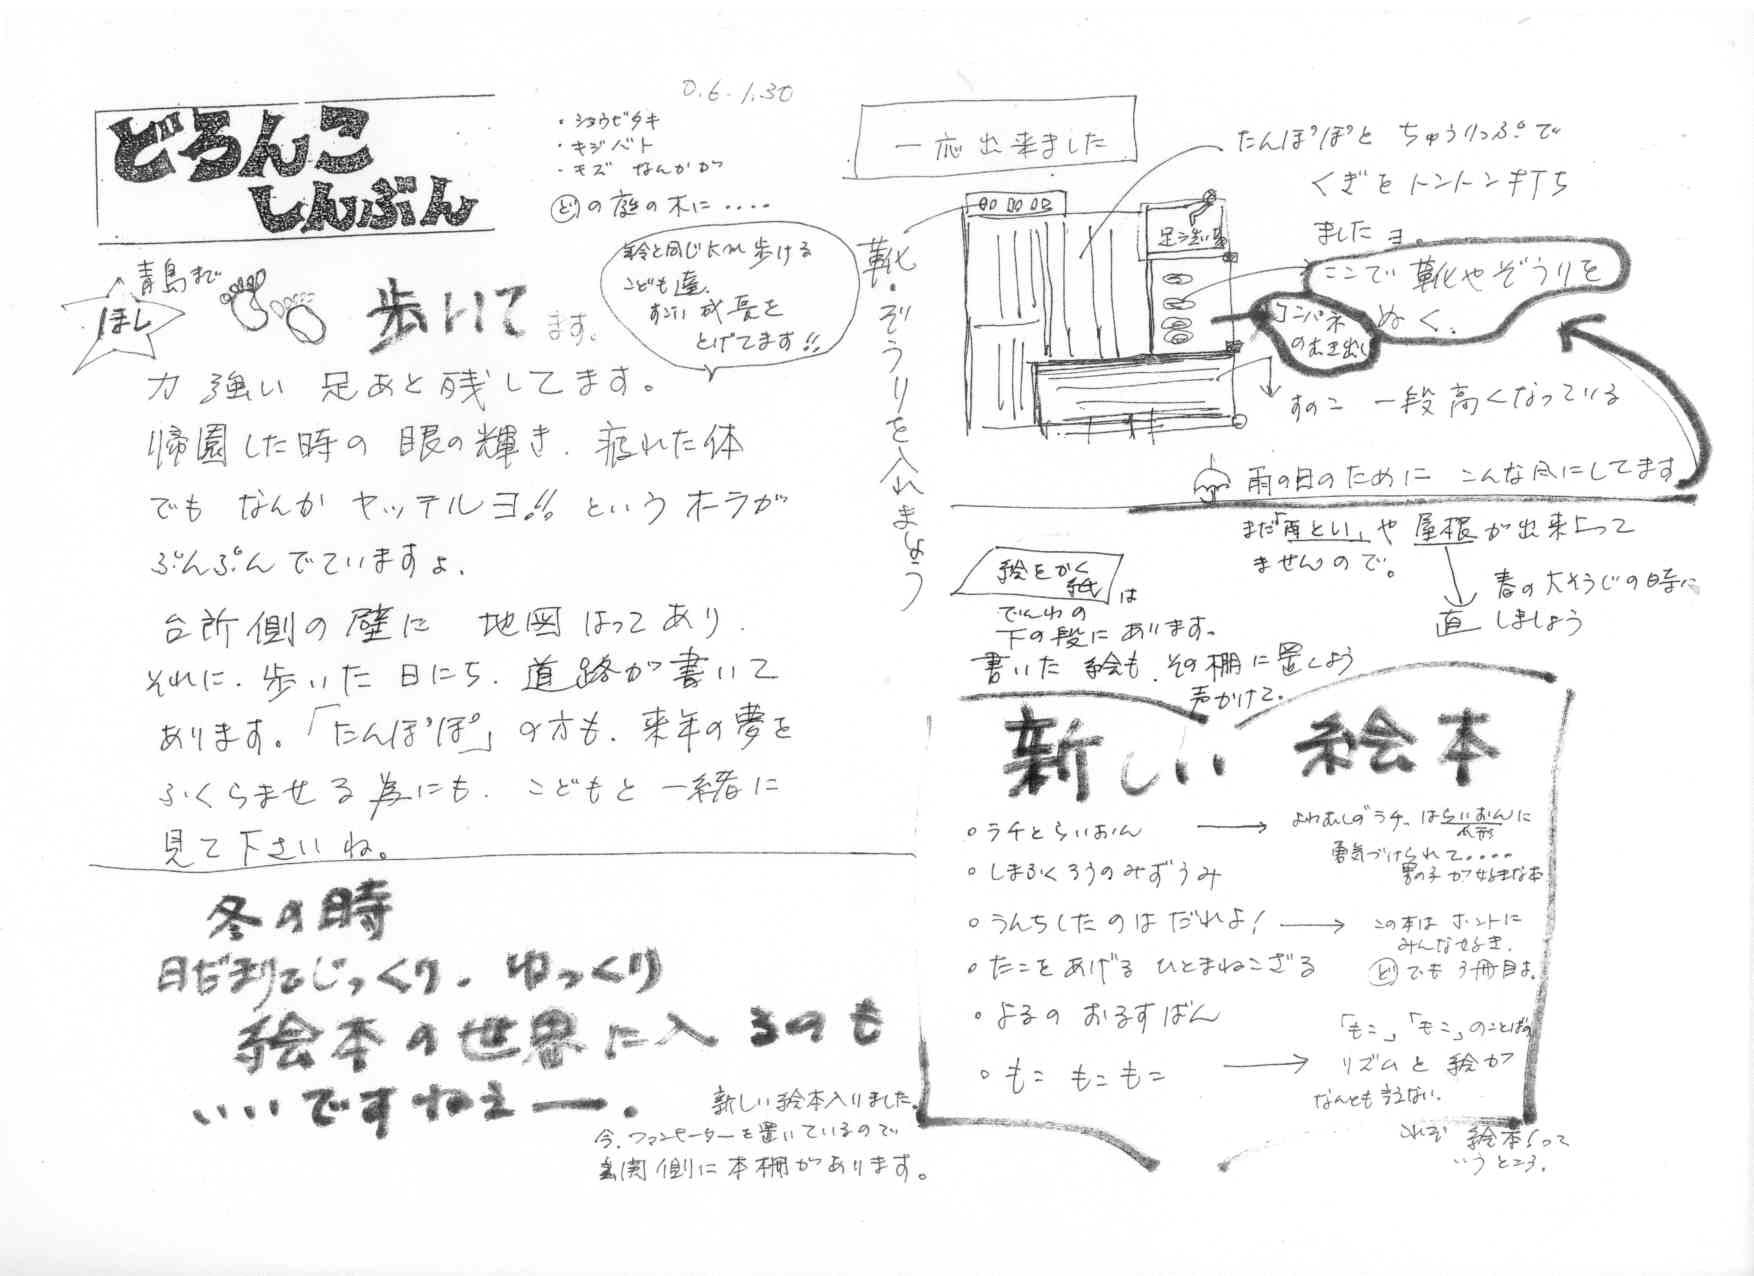 0.6.1.30
どろんこ
しんぶん
・ショウビタキ
・キジバト
・モズ なんかが
どの庭の木に・・・・
青島まで
ほし
歩いて
ます。
年令と同じkm歩ける
こども達、
すごい成長を
とげてます!!
力強い 足あと残してます。
帰園した時の 眼の輝き、疲れた体
でも なんか ヤッテルヨ!! という オーラが
ぷんぷんでていますよ。
台所側の壁に 地図はってあり、
それに、歩いた日にち、道路が書いて
あります。「たんぽぽ」の方も、来年の夢を
ふくらませる為にも、こどもと一緒に
見て下さいね。
冬の時
日だまりでじっくり、ゆっくり
絵本の世界に入るのも
いいですねえー。
新しい絵本入りました。
今、ファンヒーターを置いているので
玄関側に本棚があります。
一応出来ました
たんぽぽと ちゅうりっぷで
くぎをトントン打ち
ましたョ。
靴・ぞうりを入れましょう
足洗い場
ここで靴やぞうりを
ぬぐ。
コンパネ
のむき出し
すのこ 一段高くなっている
雨の日のために こんな風にしてます
まだ「雨とい」や 屋根が出来上って
ませんので。
春の大そうじの時に
直しましょう
絵をかく
紙
は
でんわの
下の段にあります。
書いた 絵も、その棚に置くよう
声かけて。
新しい 絵本
○ラチとらいおん → よわむしのラチ、はらいおんに
人形
勇気づけられて・・・・
男の子が好きな本
○しまふくろうのみずうみ
○うんちしたのはだれよ! → この本は ホントに
みんな好き。
どでも3冊目よ。
○たこをあげる ひとまねこざる
・よるの おるすばん
○もこ もこもこ → 「もこ」「もこ」のことばの
リズムと 絵が
なんとも言えない。
これぞ 絵本って
いうところ。